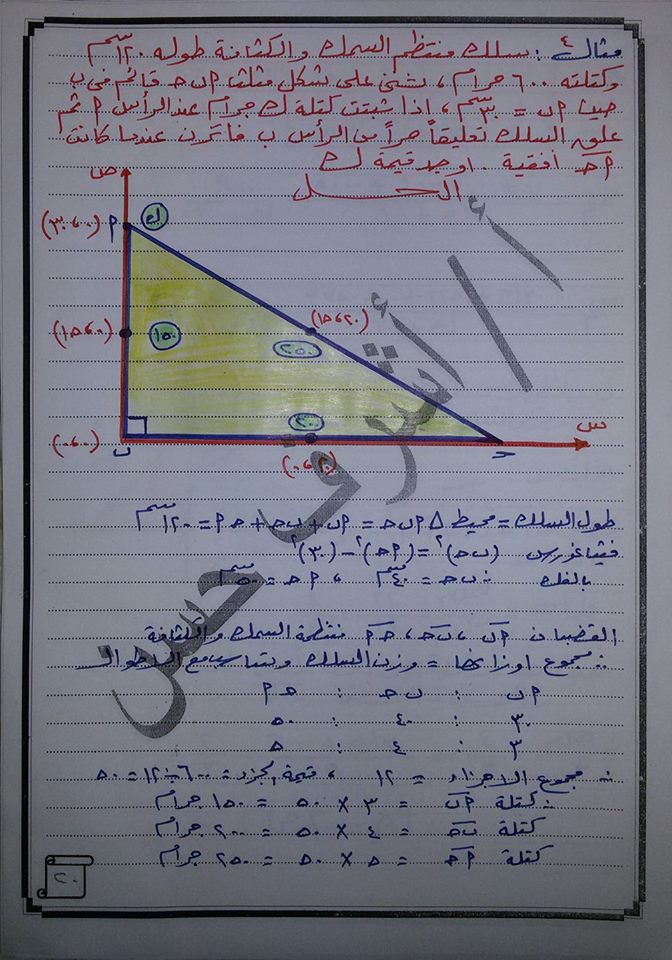 مثال ٤ : سلك منتظم السمك والكثافة طوله ١٢٠ سم
وكتلته ٦٠٠ جرام ، ثنى على شكل مثلث ا ب ح قائم فى ب
حيث ا ب = ٣٠ سم ، اذا ثبتت كتلة ك جرام عند الرأس ا ثم
علق السلك تعليقاً حراً من الرأس ب فاتزن عندما كانت
ا ح افقية . اوجد قيمة ك
الحـــــل
ص
(٣٠،٠) ا ك
(١٥،٠) ١٥٠ (١٥،٢٠)
٢٥٠
٢٠٠ س
(٠،٠) ب (٠،٢٠) ح
أ / أشرف حسن
طول السلك = محيط Δ ا ب ح = ا ب + ب ح + ح ا = ١٢٠ سم
فيثاغورس (ب ح)٢ = (ا ح)٢ - (٣٠)٢
بالفك ∴ ب ح = ٤٠ سم ، ا ح = ٥٠ سم
القضبان ا ب ، ب ح ، ح ا منتظمة السمك والكثافة
∴ مجموع اوزانها = وزن السلك ويتناسب مع الاطوال
ا ب : ب ح : ح ا
٣٠ : ٤٠ : ٥٠
٣ : ٤ : ٥
∴ مجموع الاجزاء = ١٢ ، قيمة الجزء = ٦٠٠ ÷ ١٢ = ٥٠
∴ كتلة ا ب = ٣ × ٥٠ = ١٥٠ جرام
كتلة ب ح = ٤ × ٥٠ = ٢٠٠ جرام
كتلة ا ح = ٥ × ٥٠ = ٢٥٠ جرام
٢٠